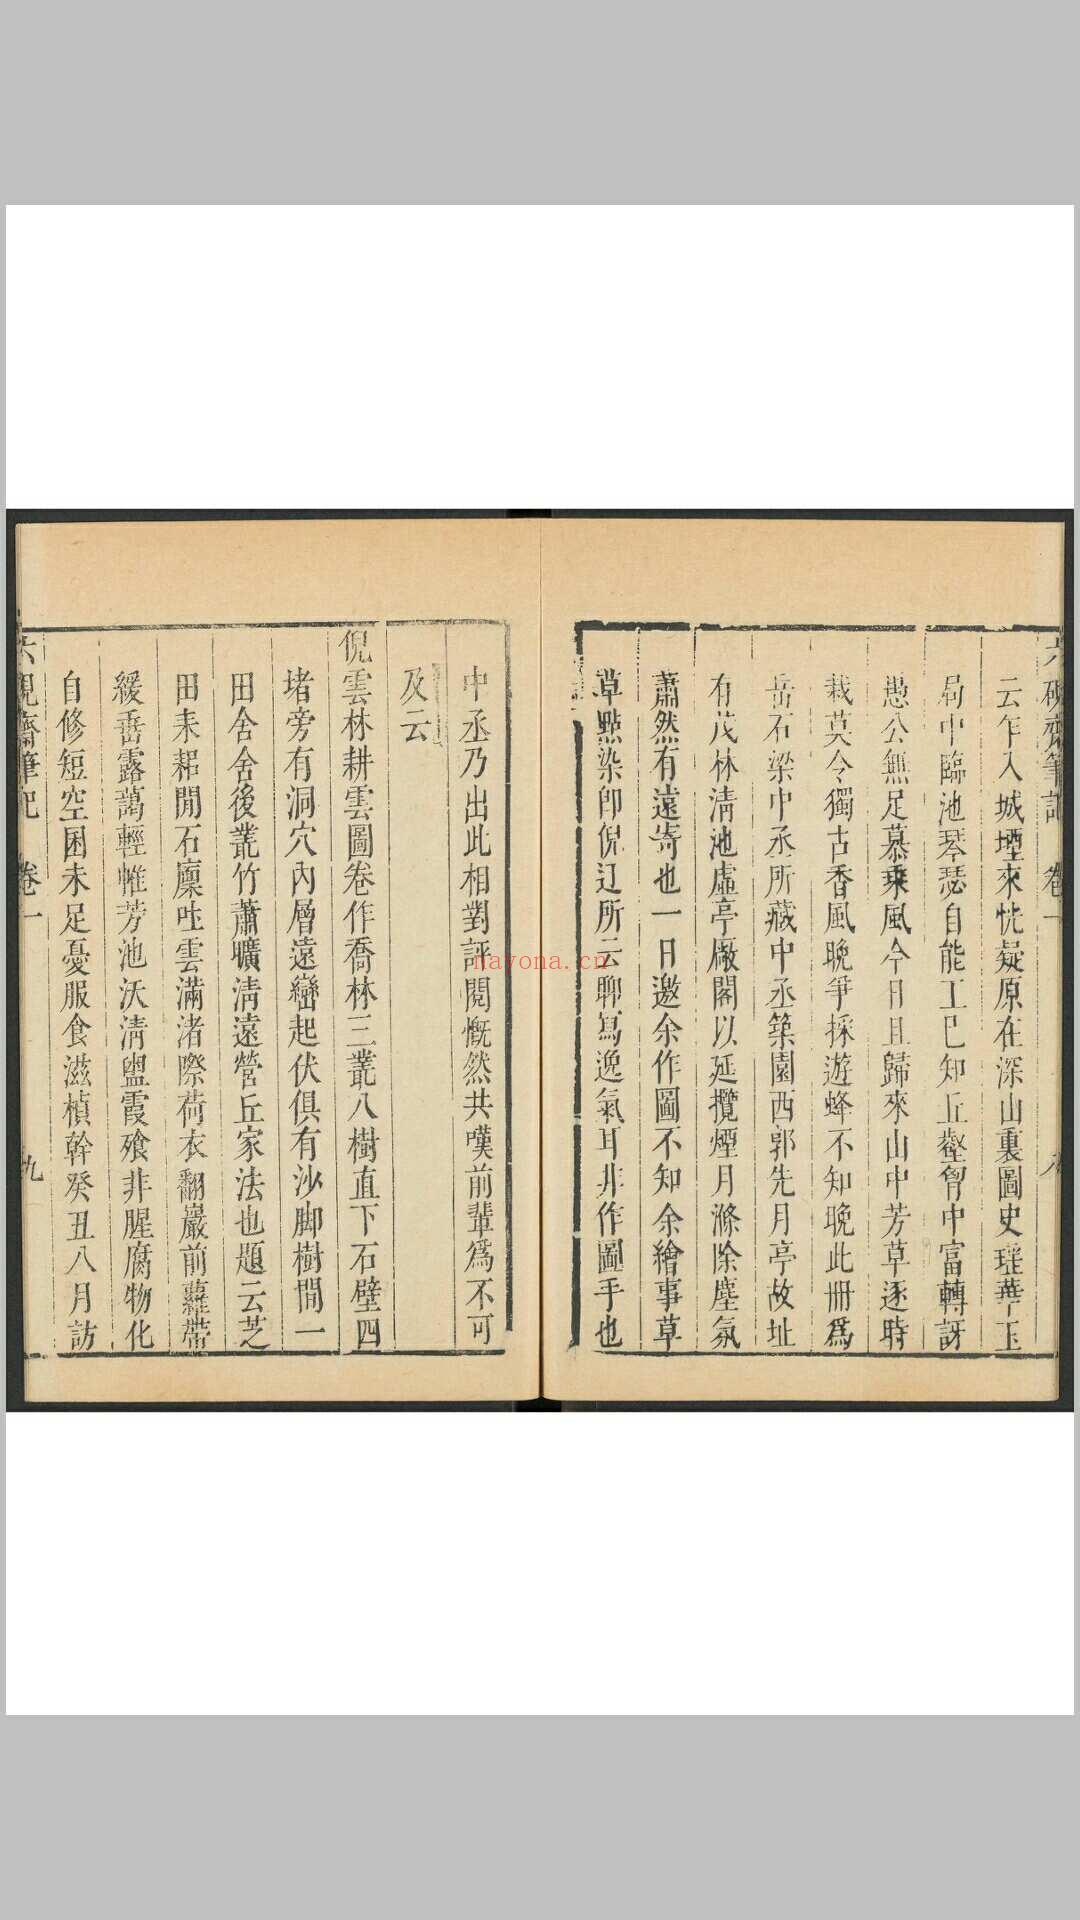 六硯齋筆記 卷一 八
云乍入城堙來恍疑原在深山裏圖史瑶華玉
局中臨池琴瑟自能工已知丘壑胷中富轉訝
愚公無足慕乗風今日且歸來山中芳草逐時
栽莫令獨古香風晚爭採遊蜂不知晚此冊爲
岳石梁中丞所藏中丞築園西郭先月亭故址
有茂林淸池虛亭廠閣以延攬煙月滌除塵氛
蕭然有遠寄也一日邀余作圖不知余繪事草
草㸃染卽倪迂所云聊寫逸氣耳非作圖手也
中丞乃出此相對評閱慨然共嘆前輩爲不可
及云
倪雲林耕雲圖卷作喬林三叢八樹直下石壁四
堵旁有洞穴內層遠巒起伏俱有沙脚樹間一
田舍舍後叢竹蕭曠淸遠營丘家法也題云芝
田耒耜閒石廩吐雲滿渚際荷衣翻巖前蘿帶
緩垂露藹輕帷芳池沃淸盥霞飱非腥腐物化
自修短空囷未足憂服食滋楨幹癸丑八月訪
六硯齋筆記 卷一 九
nayona.cn